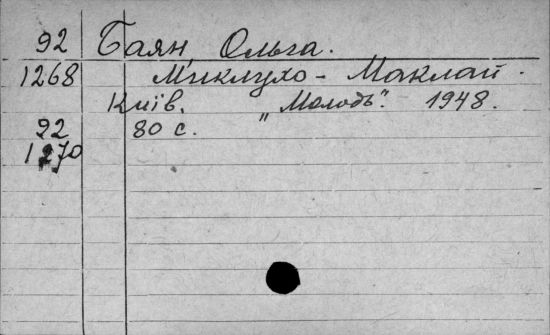 92 Баян, Ольга.
1268 Миклухо - Маклай.
Київ. „Молодь". 1948.
92 80 с.
1270